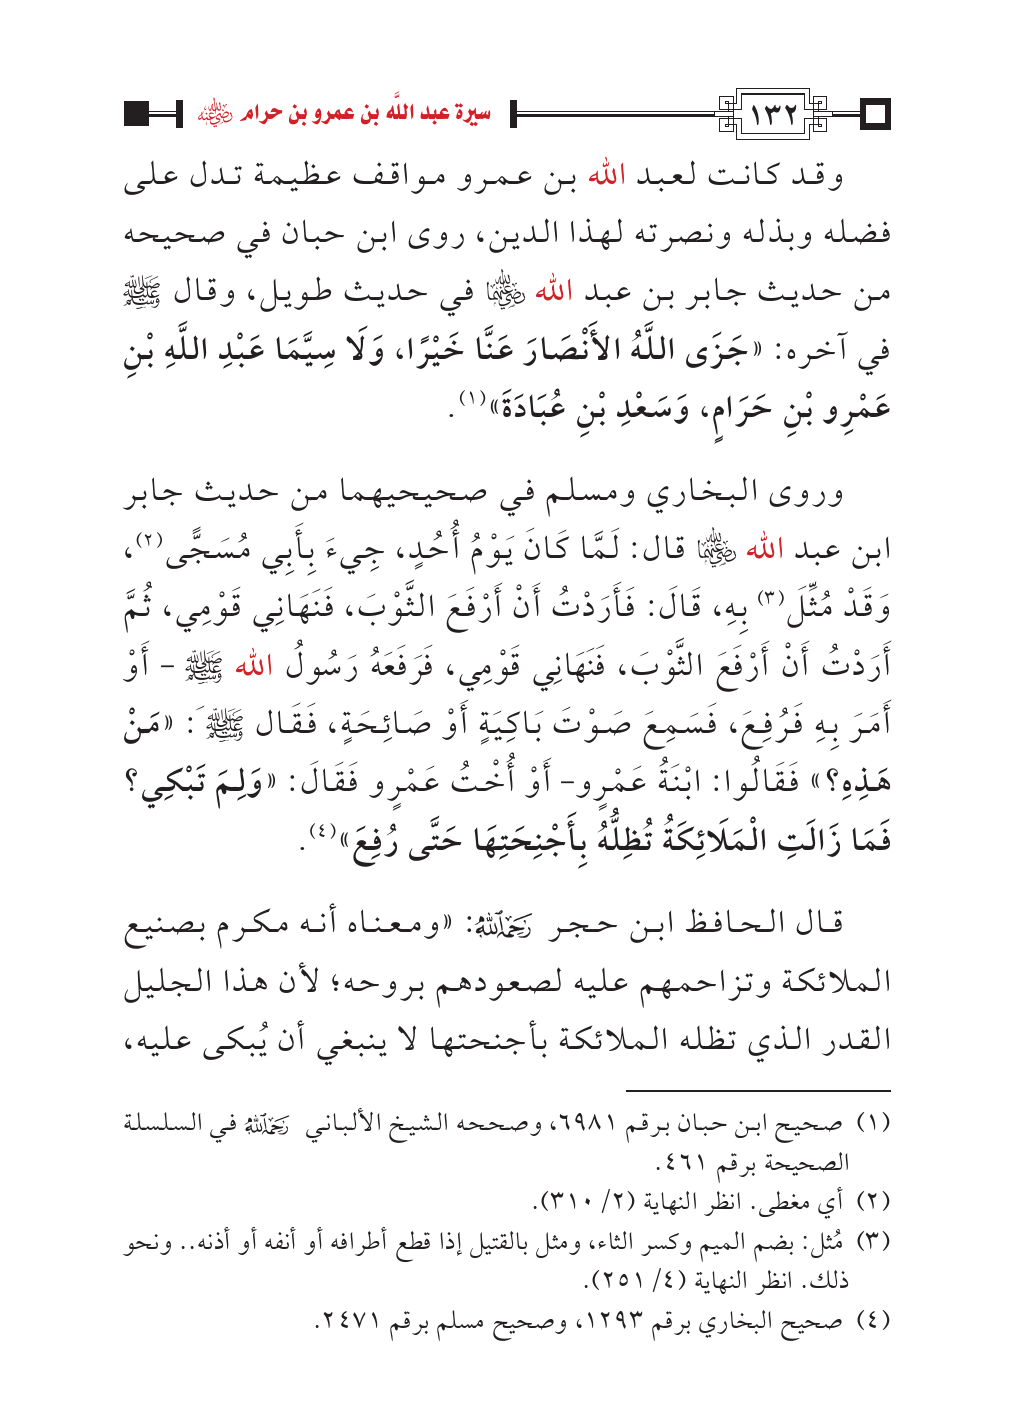 ١٣٢
سيرة عبد الله بن عمرو بن حرام رضي الله عنه
وقد كانت لعبد الله بن عمرو مواقف عظيمة تدل على
فضله وبذله ونصرته لهذا الدين، روى ابن حبان في صحيحه
من حديث جابر بن عبد الله رضي الله عنهما في حديث طويل، وقال ﷺ
في آخره: «جَزَى اللَّهُ الأَنْصَارَ عَنَّا خَيْرًا، وَلَا سِيَّمَا عَبْدِ اللَّهِ بْنِ
عَمْرِو بْنِ حَرَامٍ، وَسَعْدِ بْنِ عُبَادَةَ»(١).
وروى البخاري ومسلم في صحيحيهما من حديث جابر
ابن عبد الله رضي الله عنهما قال: لَمَّا كَانَ يَوْمُ أُحُدٍ، جِيءَ بِأَبِي مُسَجًّى(٢)،
وَقَدْ مُثِّلَ(٣) بِهِ، قَالَ: فَأَرَدْتُ أَنْ أَرْفَعَ الثَّوْبَ، فَنَهَانِي قَوْمِي، ثُمَّ
أَرَدْتُ أَنْ أَرْفَعَ الثَّوْبَ، فَنَهَانِي قَوْمِي، فَرَفَعَهُ رَسُولُ الله ﷺ - أَوْ
أَمَرَ بِهِ فَرُفِعَ، فَسَمِعَ صَوْتَ بَاكِيَةٍ أَوْ صَائِحَةٍ، فَقَال ﷺَ: «مَنْ
هَذِهِ؟» فَقَالُوا: ابْنَةُ عَمْرٍو- أَوْ أُخْتُ عَمْرٍو فَقَالَ: «وَلِمَ تَبْكِي؟
فَمَا زَالَتِ الْمَلَائِكَةُ تُظِلُّهُ بِأَجْنِحَتِهَا حَتَّى رُفِعَ»(٤).
قال الحافظ ابن حجر رحمه الله: «ومعناه أنه مكرم بصنيع
الملائكة وتزاحمهم عليه لصعودهم بروحه؛ لأن هذا الجليل
القدر الذي تظله الملائكة بأجنحتها لا ينبغي أن يُبكى عليه،
(١) صحيح ابن حبان برقم ٦٩٨١، وصححه الشيخ الألباني رحمه الله في السلسلة
الصحيحة برقم ٤٦١.
(٢) أي مغطى. انظر النهاية (٢/ ٣١٠).
(٣) مُثل: بضم الميم وكسر الثاء، ومثل بالقتيل إذا قطع أطرافه أو أنفه أو أذنه.. ونحو
ذلك. انظر النهاية (٤/ ٢٥١).
(٤) صحيح البخاري برقم ١٢٩٣، وصحيح مسلم برقم ٢٤٧١.